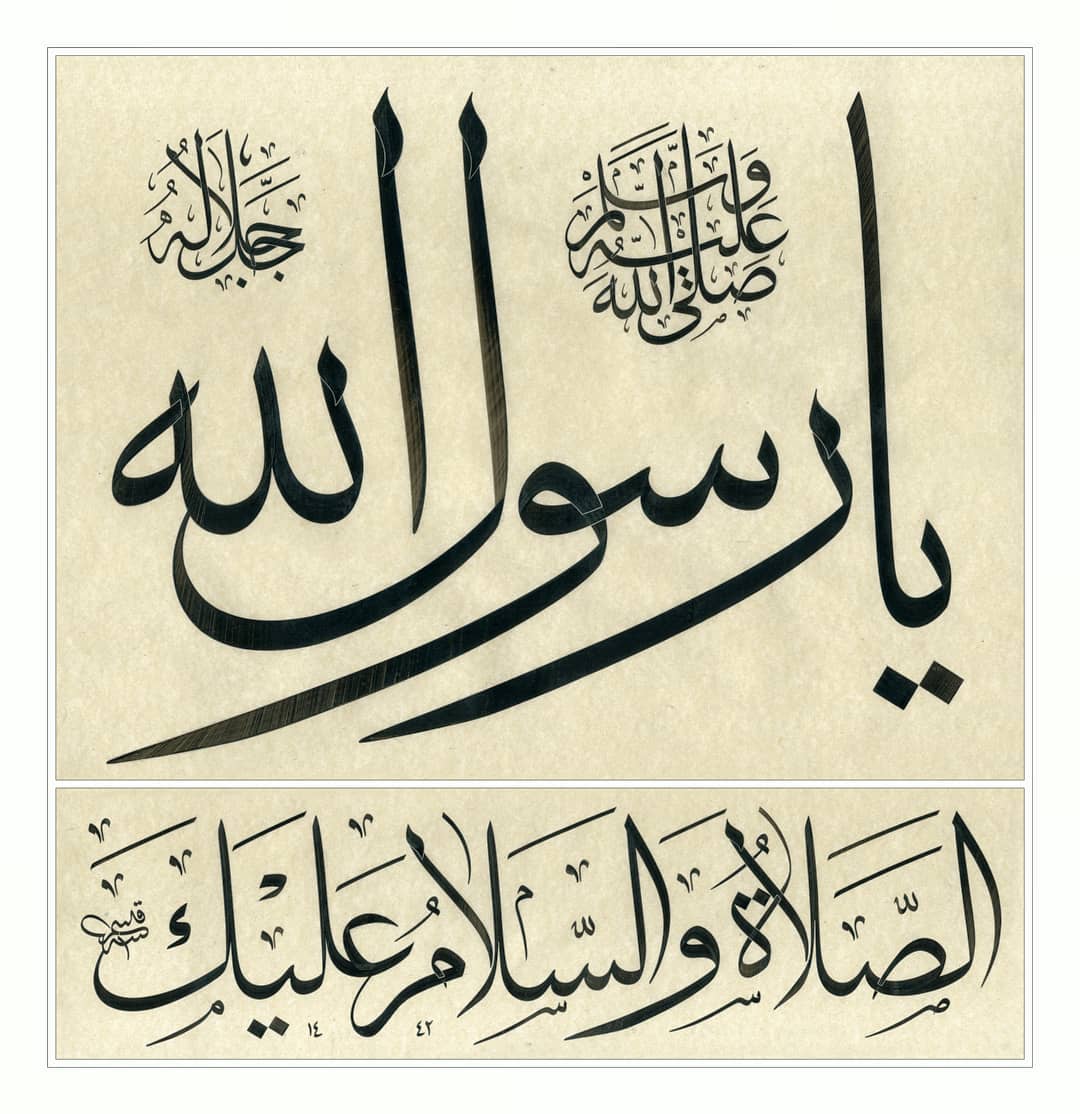 يا رسول الله
صَلَّى اللهُ عَلَيْهِ وَسَلَّمَ
جَلَّ جَلَالُهُ
الصَّلَاةُ وَالسَّلَامُ عَلَيْكَ
١٤٤٢